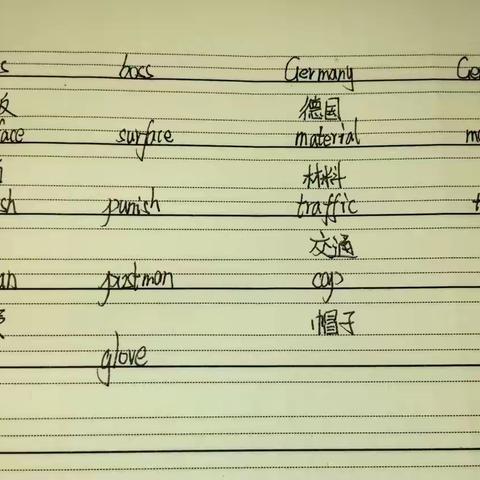 s boss Germany Ge
反 德国
face surface material ma
面 材料
sh punish traffic t
交通
an postman cap
帽子
glove